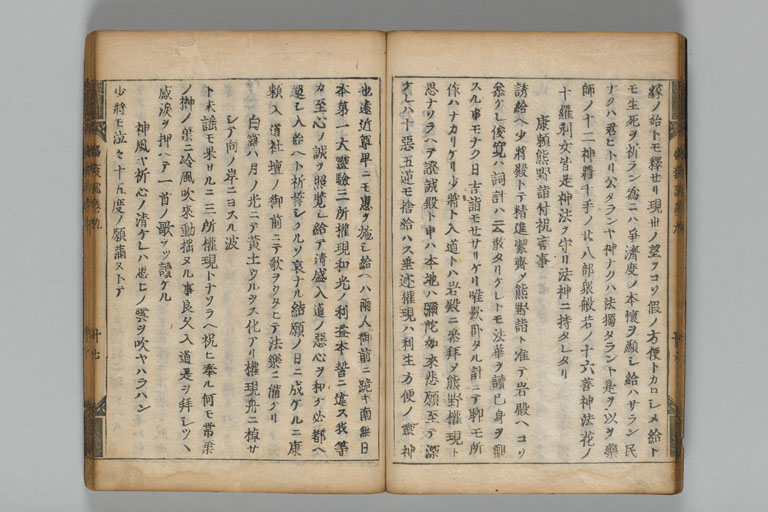 縡ノ始トモ釋セリ現世ノ望ヲコソ假ノ方便トカロシメ給ト
モ生死ヲ祈ラン爲ニハ爭濟度ノ本懷ヲ願シ給ハサラン民
ナクハ君ヒトリ公タランヤ神ナクハ法獨タラント是ヲ以ヲ藥
師ノ十二神將千手ノ廿八部衆般若ノ十六善神法花ノ
十羅刹女皆是神法ヲ守リ法神ニ持タレタリ
康頼熊野詣付祝言事
誘給ヘ少將殿トテ精進潔齊〆熊野詣ト准テ岩殿ヘコソ
參ケレ俊寛ハ詞計ハ云散タリケレトモ法華ヲ讀己身ヲ觀
スル事モナク日吉詣モセサリケリ唯歎卧タル計ニテ聊モ所
作ハナカリケリ少將ト入道トハ岩殿ニ參拜〆熊野權現ト
思ナソラヘテ證誠殿ト申ハ本地ハ彌陀如來悲願至テ深
ケレハ十惡五逆モ捨給ハス垂迹權現ハ利生方便ノ靈神
也遠近尊卑ニモ惠ヲ施シ給ヘハ兩人御前ニ跪キ南無日
本第一大靈驗三所權現和光ノ利益本誓ニ違ス我等
カ至心ノ誠ヲ照覽シ給テ清盛入道ノ惡心ヲ和ケ必都ヘ
還シ入給ヘト祈誓シクルソ哀ナル結願ノ日ニ成ケルニ康
頼入道社壇ノ御前ニテ歌ヲウタヒテ法樂ニ備ケリ
白露ハ月ノ光ニテ黄土ウルヲス化アリ權現舟ニ棹サ
シテ向ノ岸ニヨスル波
ト未謡モ果サルニ三所權現トナソラヘ祝ヒ奉ル何モ常葉
ノ榊ノ葉ニ冷風吹來動揺スル事良久入道是ヲ拜シツヽ
感涙ヲ押ヘテ一首ノ歌ヲソ讀ケル
神風ヤ祈心ノ清ケレハ思ヒノ雲ヲ吹ヤハラハン
少將モ泣々十五度ノ願滿ストテ